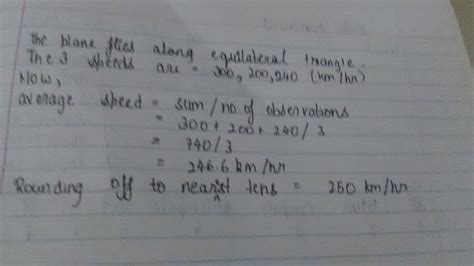 The plane flies along equilateral triangle.
The 3 speeds are = 300, 200, 240 (km/hr)
Now,
average speed = sum / no of observations
= 300 + 200 + 240 / 3
= 740 / 3
= 246.6 km/hr
Rounding off to nearest tens = 250 km/hr